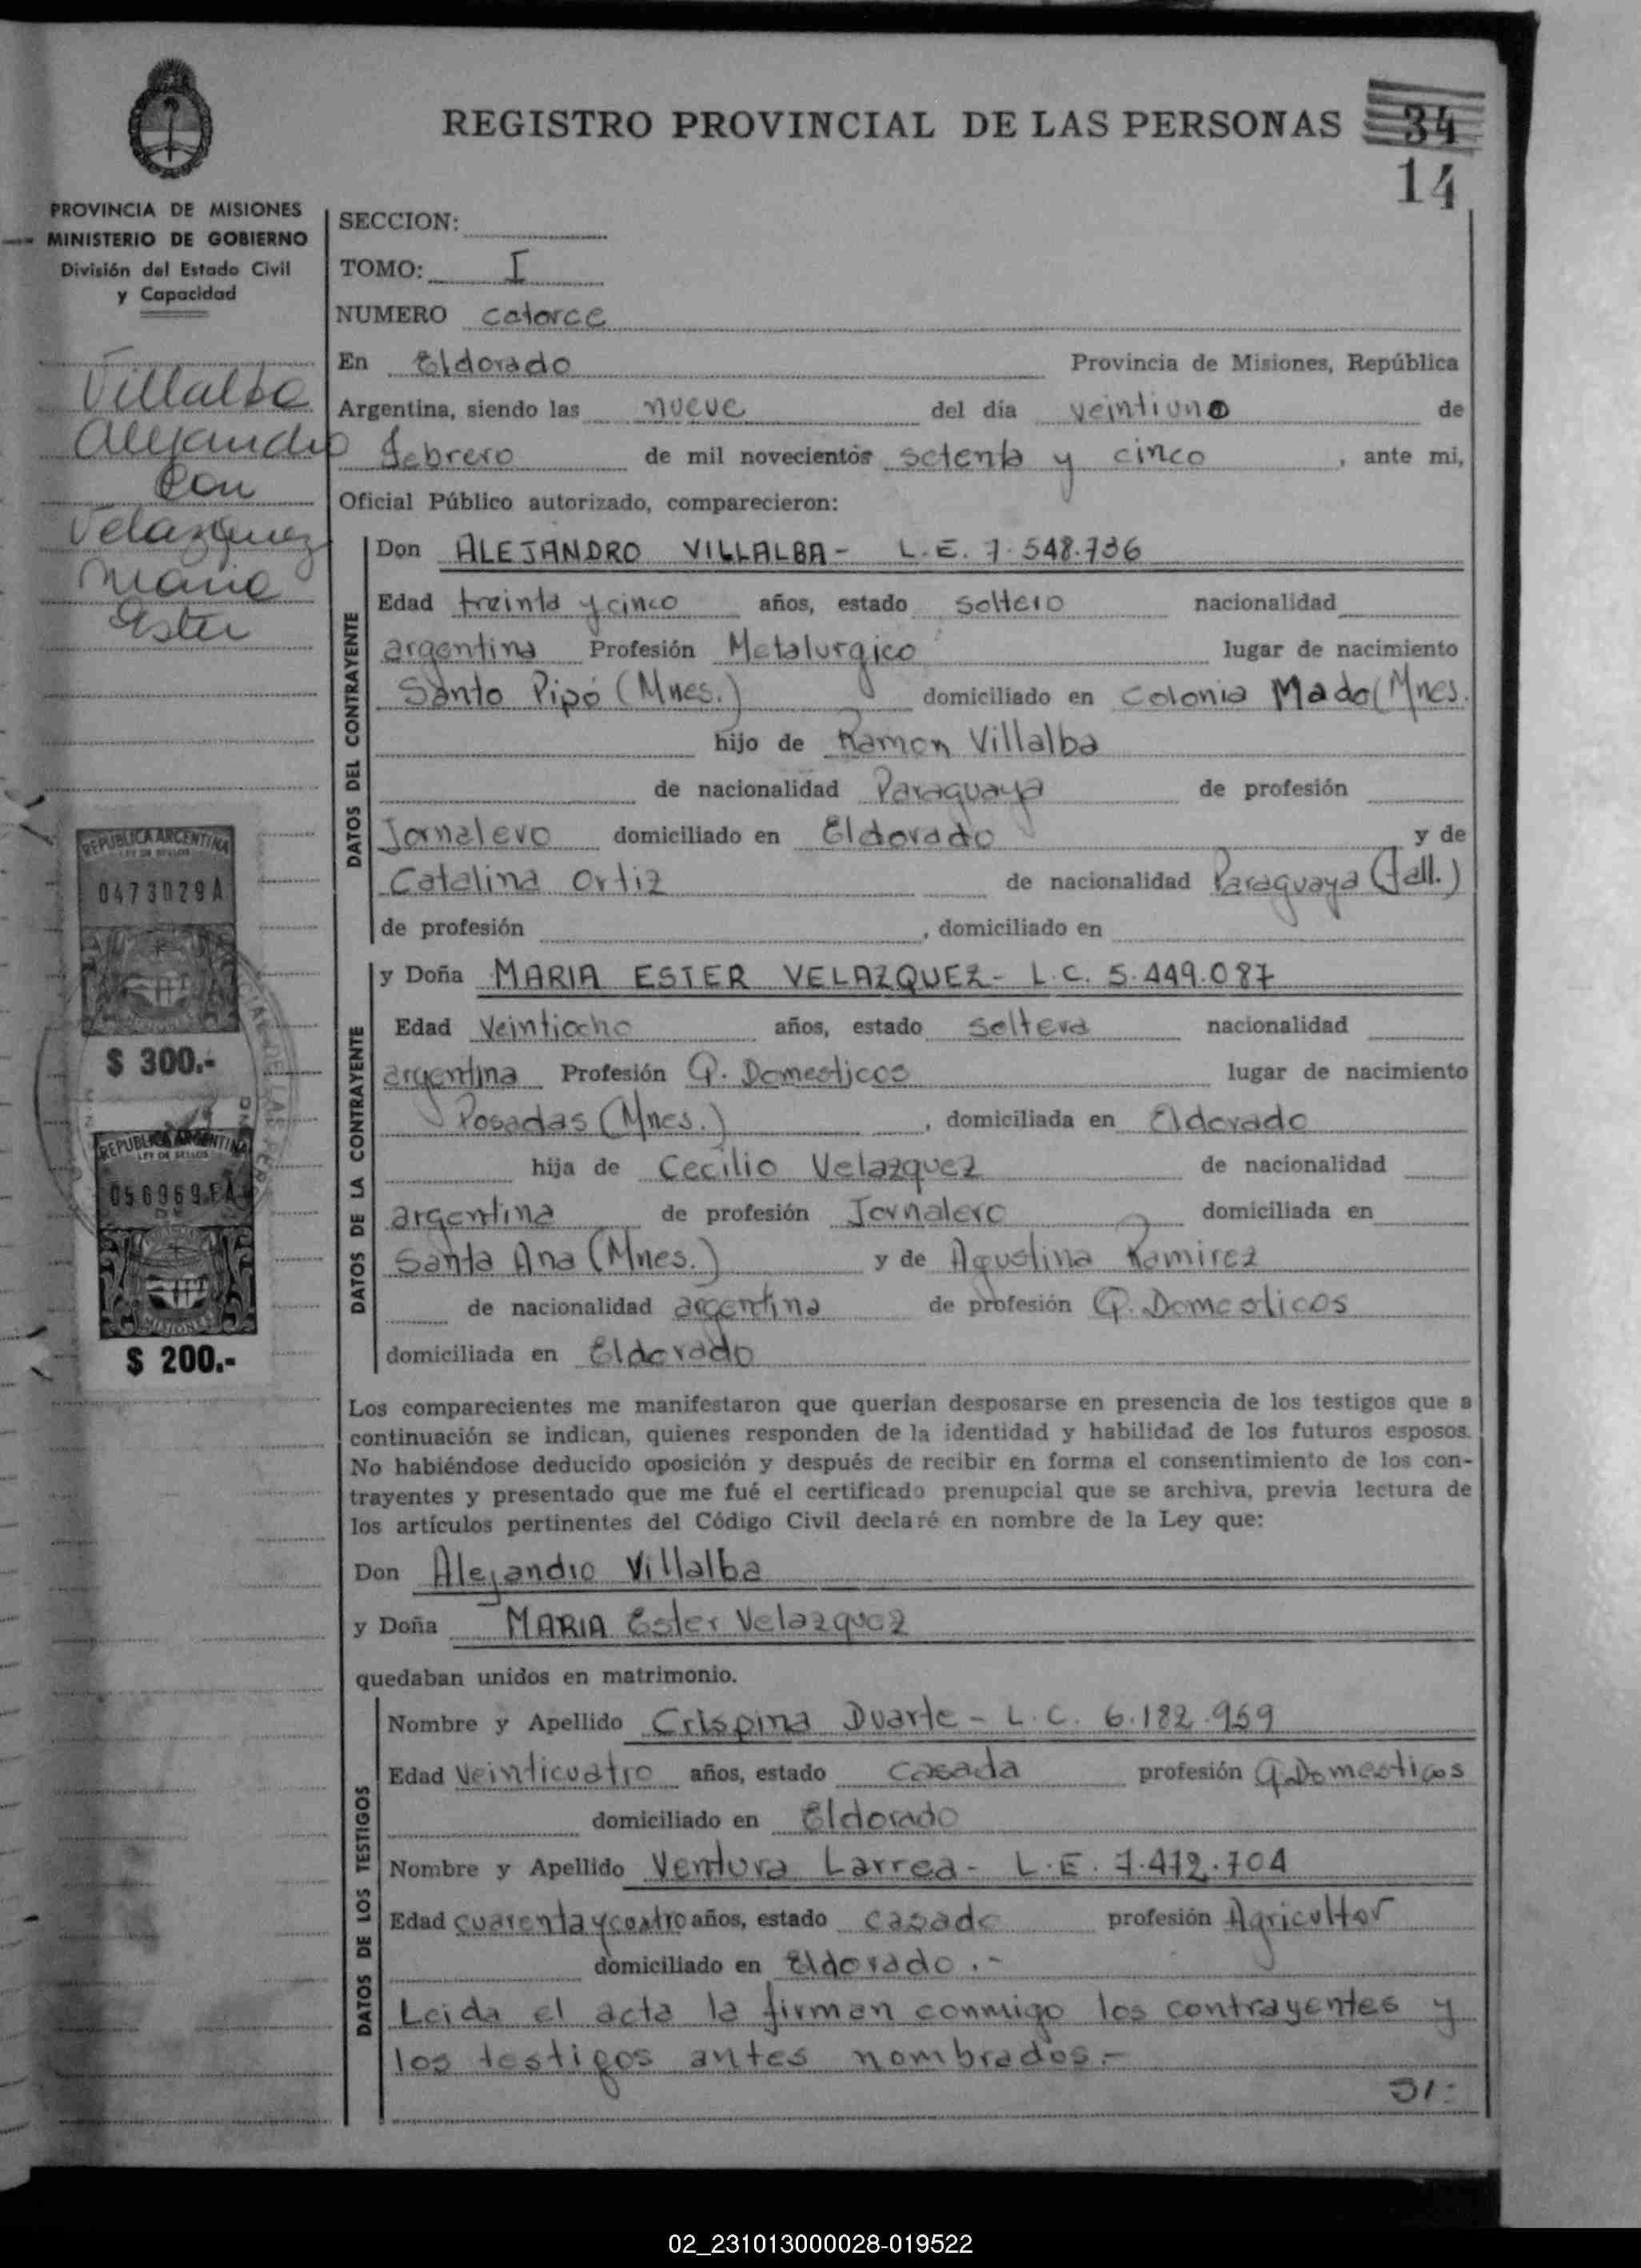 REGISTRO PROVINCIAL DE LAS PERSONAS 34
14
PROVINCIA DE MISIONES
MINISTERIO DE GOBIERNO
División del Estado Civil
y Capacidad
Villalba
Alejandro
con
Velazquez
Maria
Ester
REPUBLICA ARGENTINA
LEY DE SELLOS
0473029A
$ 300.-
REPUBLICA ARGENTINA
LEY DE SELLOS
MISIONES
$ 200.-
SECCION:
TOMO: I
NUMERO catorce
En Eldorado Provincia de Misiones, República
Argentina, siendo las nueve del día veintiuno de
febrero de mil novecientos setenta y cinco, ante mi,
Oficial Público autorizado, comparecieron:
DATOS DEL CONTRAYENTE
Don ALEJANDRO VILLALBA- L.E. 7.548.736
Edad treinta y cinco años, estado soltero nacionalidad
argentina Profesión Metalurgico lugar de nacimiento
Santo Pipó (Mnes.) domiciliado en Colonia Mado (Mnes.
hijo de Ramon Villalba
de nacionalidad Paraguaya de profesión
Jornalero domiciliado en Eldorado y de
Catalina Ortiz de nacionalidad Paraguaya (fall.)
de profesión , domiciliado en
DATOS DE LA CONTRAYENTE
y Doña MARIA ESTER VELAZQUEZ- L.C. 5.449.087
Edad veintiocho años, estado soltera nacionalidad
argentina Profesión Q. Domesticos lugar de nacimiento
Posadas (Mnes.) , domiciliada en Eldorado
hija de Cecilio Velazquez de nacionalidad
argentina de profesión Jornalero domiciliada en
Santa Ana (Mnes.) y de Agustina Ramirez
de nacionalidad argentina de profesión Q. Domesticos
domiciliada en Eldorado
Los comparecientes me manifestaron que querían desposarse en presencia de los testigos que a
continuación se indican, quienes responden de la identidad y habilidad de los futuros esposos.
No habiéndose deducido oposición y después de recibir en forma el consentimiento de los con-
trayentes y presentado que me fué el certificado prenupcial que se archiva, previa lectura de
los artículos pertinentes del Código Civil declaré en nombre de la Ley que:
Don Alejandro Villalba
y Doña MARIA Ester Velazquez
quedaban unidos en matrimonio.
DATOS DE LOS TESTIGOS
Nombre y Apellido Crispina Duarte - L.C. 6.182.959
Edad veinticuatro años, estado casada profesión Q.Domesticos
domiciliado en Eldorado
Nombre y Apellido Ventura Larrea- L.E. 7.472.704
Edad cuarenta y cuatro años, estado casado profesión Agricultor
domiciliado en Eldorado.-
Leida el acta la firman conmigo los contrayentes y
los testigos antes nombrados.-
02_231013000028-019522